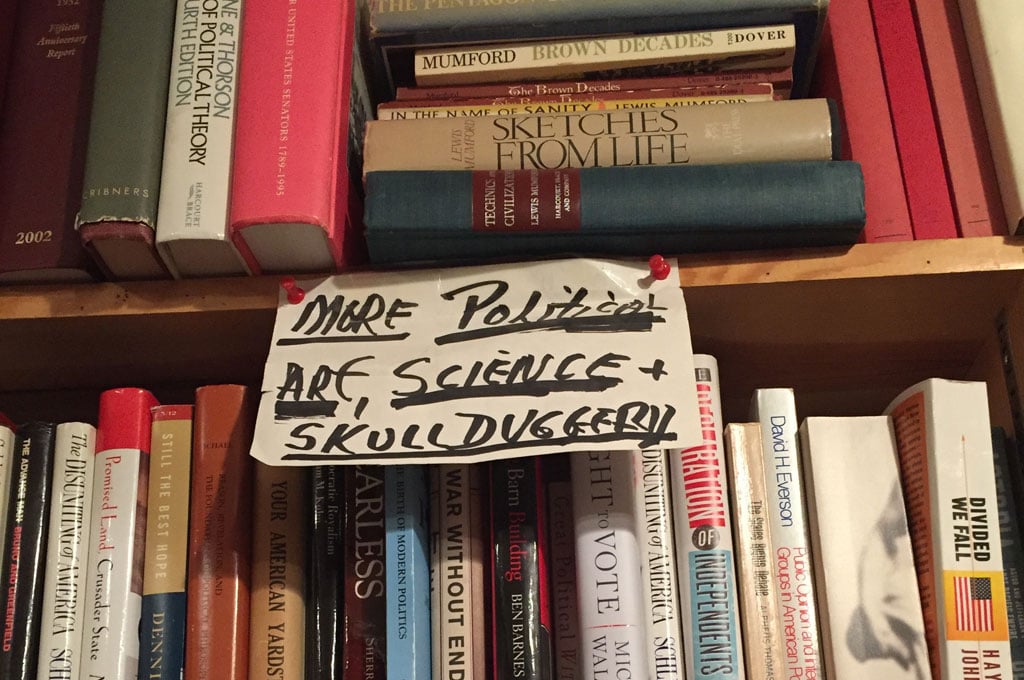 Fiftieth
Anniversary
Report
2002
CRIBNERS
NE & THORSON
OF POLITICAL THEORY
URTH EDITION
HARCOURT
BRACE
UNITED STATES SENATORS 1789-1995
THE PENTAGON
MUMFORD BROWN DECADES DOVER
The Brown Decades
The Brown Decades
IN THE NAME OF SANITY LEWIS MUMFORD
LEWIS MUMFORD
SKETCHES
FROM LIFE
TECHNICS
CIVILIZAT
LEWIS MUM
HARCOURT,
AND COMPANY
MORE Political
ART, SCIENCE +
SKULLDUGGERY
THE ADVANCE MAN BRUNO AND GREENFIELD
The DISUNITING of AMERICA SCH
Promised Land, Crusader State
STILL THE BEST HOPE DENNI
YOUR AMERICAN YARDS
ocratic Royalism
EARLESS SHERR
BIRTH OF MODERN POLITICS
WAR WITHOUT END
Barn Building BEN BARNES
Political Wi
GHT to VOTE MIC
WAL
DISUNITING of AMERICA SCHL
DECLARATION OF INDEPENDENTS
David H. Everson Public Opinion and Inte
Groups in American Po
DIVIDED
WE FALL
HAY
JOHN